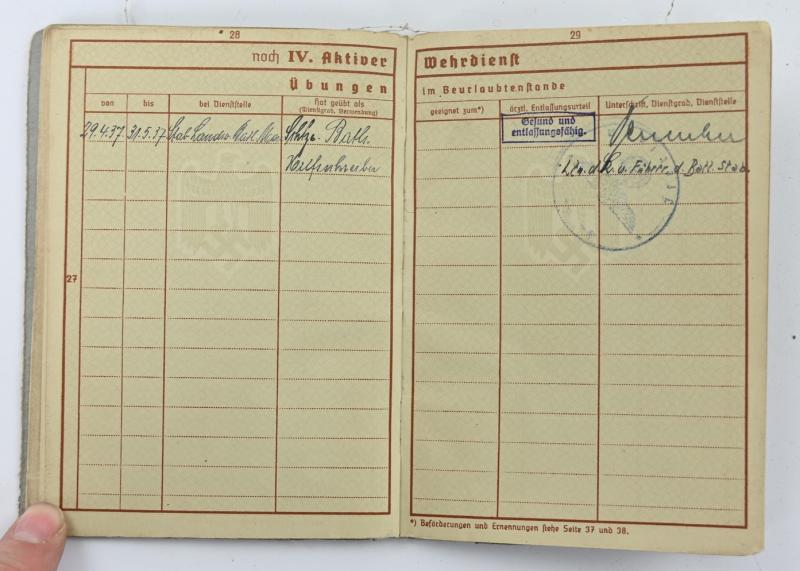 28
noch IV. Aktiver
Übungen
von
bis
bei Dienststelle
Hat geübt als
(Dienstgrad, Verwendung)
29.4.37
31.5.37
Stab Landw. Batl.
Batls.
Hilfsschreiber
27
29
Wehrdienst
im Beurlaubtenstande
geeignet zum*)
ärztl. Entlassungsurteil
Unterschrift, Dienstgrad, Dienststelle
Gesund und
entlassungsfähig.
Ltn. d. R. u. Führer d. Batl. Stab.
*) Beförderungen und Ernennungen siehe Seite 37 und 38.